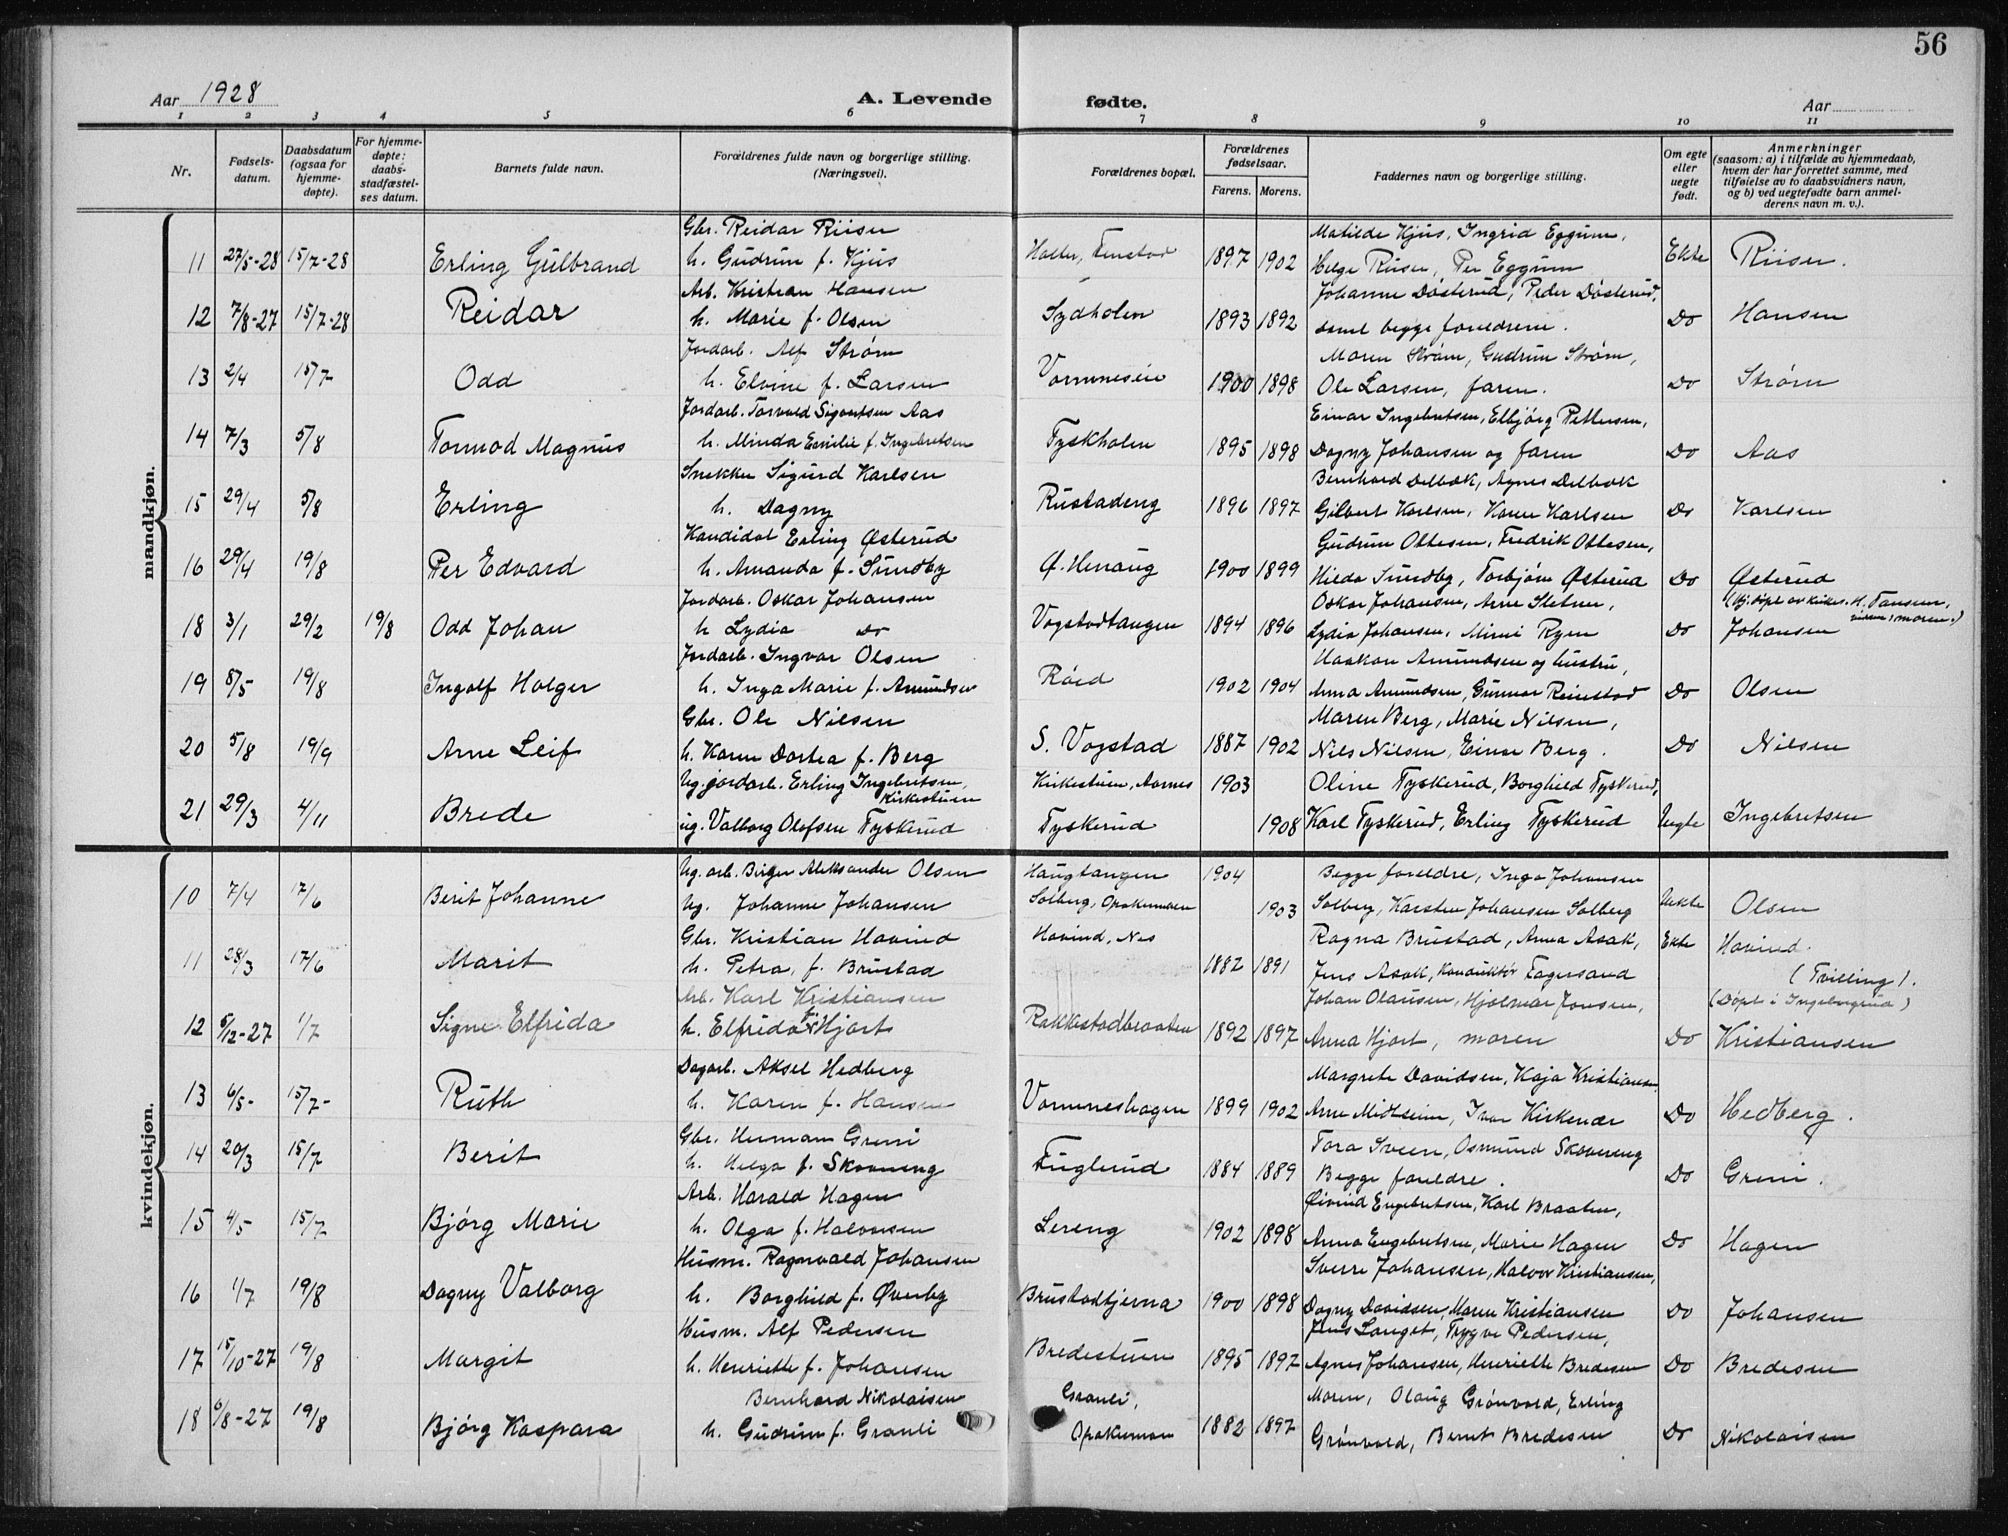 56
Aar 1928
A. Levende fødte.
Aar
1 2 3 4 5 6 7 8 9 10 11
Nr.
Fødsels-datum.
Daabsdatum (ogsaa for hjemme-døpte).
For hjemme-døpte: daabs-stadfæstel-ses datum.
Barnets fulde navn.
Forældrenes fulde navn og borgerlige stilling. (Næringsvei).
Forældrenes bopæl.
Forældrenes fødselsaar.
Farens. Morens.
Faddernes navn og borgerlige stilling.
Om egte eller uegte født.
Anmerkninger (saasom: a) i tilfælde av hjemmedaab, hvem der har forrettet samme, med tilføielse av to daabsvidners navn, og b) ved uegtefødte barn anmel-derens navn m. v.).
mandkjøn.
Gbr. Reidar Riiser Matilde Kjus, Ingrid Eggum,
11 27/5-28 15/7-28 Erling Gulbrand h. Gudrun f. Kjus Haller, Fenstad 1897 1902 Helge Riiser, Per Eggum Ekte Riiser.
Arb. Kristian Hansen Johanne Døsterud, Peder Døsterud,
12 7/8-27 15/7-28 Reidar h. Marie f. Olsen Sydholen 1893 1892 samt begge foreldrene. Do Hansen
Jordarb. Alf Strøm Maren Strøm, Gudrun Strøm,
13 2/4 15/7 Odd h. Elvine f. Larsen Vormnesin 1900 1898 Ole Larsen, faren. Do Strøm
Jordarb. Torvald Sigvartsen Aas Einar Ingebretsen, Elbjørg Pettersen,
14 7/3 5/8 Tormod Magnus h. Minda Emilie f. Ingebretsen Tyskholen 1895 1898 Dagny Johansen og faren Do Aas
Snekker Sigurd Karlsen Bernhard Delbæk, Agnes Delbæk
15 29/4 5/8 Erling h. Dagny Rustadeng 1896 1897 Gilbert Karlsen, Karen Karlsen Do Karlsen
Kandidat Erling Østerud Gudrun Ottesen, Fredrik Ottesen,
16 29/4 19/8 Per Edvard h. Amanda f. Sundby Ø. Henaug 1900 1899 Hilda Sundby, Torbjørn Østerud Do Østerud
Jordarb. Oskar Johansen Oskar Johansen, Arne Sletner, (Hj. døpt av kirkes. H. Fansem,
18 3/1 29/2 19/8 Odd Johan h Lydia Do Vogstadtangen 1894 1896 Lydia Johansen, Mimi Ryen Do Johansen moren.)
Jordarb. Ingvar Olsen Haakon Amundsen og hustru,
19 8/5 19/8 Ingolf Holger h. Inga Marie f. Amundsen Røed 1902 1904 Anna Amundsen, Gunnar Reinstad Do Olsen
Gbr. Ole Nielsen Maren Berg, Marie Nilsen,
20 5/8 19/9 Arne Leif h. Karen Dortea f. Berg S. Vogstad 1887 1902 Nils Nilsen, Einar Berg. Do Nilsen
Ug. jordarb. Erling Ingebretsen, Kirkestuen Kirkestuen, Aarnes 1903 Oline Tyskerud, Borghild Tyskerud,
21 29/3 4/11 Brede ug. Valborg Olofsen Tyskerud Tyskerud 1908 Karl Tyskerud, Erling Tyskerud Uegte Ingebretsen
kvindekjøn.
Ug. arb. Birger Aleksander Olsen Haugtangen 1904 Begge foreldre, Inga Johansen
10 7/4 17/6 Berit Johanne Ug. Johanne Johansen Solberg, Opakermoen 1903 Solberg, Karsten Johansen Solberg Uekte Olsen
Gbr. Kristian Hovind Hovind, Nes Ragna Brustad, Anna Asak, Ekte Hovind.
11 28/3 17/6 Marit h. Petra, f. Brustad 1882 1891 Jens Asak, Konduktør Fagersand (Tvilling).
Arb. Karl Kristiansen Johan Olausen, Hjalmar Jonsen, (Døpt i Ingeborgrud)
12 5/12-27 1/7 Signe Elfrida h. Elfrida f. Hjort Rakkestadbraaten 1892 1897 Anna Hjort, moren Do Kristiansen
Dagarb. Aksel Hedberg Margrete Davidsen, Kaja Kristiansen
13 6/5- 15/7- Ruth h. Karen f. Hansen Vormneshagen 1899 1902 Arne Midtseim, Ivar Kirkenær Do Hedberg.
Gbr. Herman Greni Tora Sveen, Osmund Skovreng
14 20/3 15/7 Berit h. Helga f. Skovreng Fuglerud 1884 1889 Begge foreldre. Do Greni.
Arb. Harald Hagen Øivind Engebretsen, Karl Braaten,
15 4/5 15/7 Bjørg Marie h. Olga f. Halvorsen Lereng 1902 1898 Anna Engebretsen, Marie Hagen Do Hagen
Husm. Ragnvald Johansen Sverre Johansen, Halvor Kristiansen,
16 1/7 19/8 Dagny Valborg h. Borghild f. Øverby Brustadtjerna 1900 1898 Dagny Davidsen, Maren Kristiansen Do Johansen
Husm. Alf Pedersen Jens Langset, Trygve Pedersen,
17 15/10-27 19/8 Margit h. Henriette f. Johansen Bredestuen 1895 1897 Agnes Johansen, Henriette Bredesen Do Bredesen
Bernhard Nikolaisen Granli, Moren, Olaug Grønvold, Erling
18 6/8-27 19/8 Bjørg Kaspara h. Gudrun f. Granli Opakermoen 1882 1897 Grønvold, Bernt Bredesen Do Nikolaisen